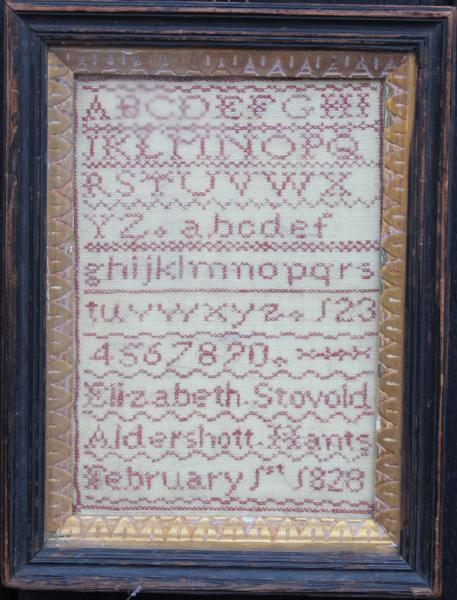 ABCDEFGHI
JKLMNOPQ
RSTUVWX
YZ. abcdef
ghijklmnopqrs
tuvwxyz. 123
4567890.
Elizabeth. Stovold
Aldershott. Hants
February 1st 1828